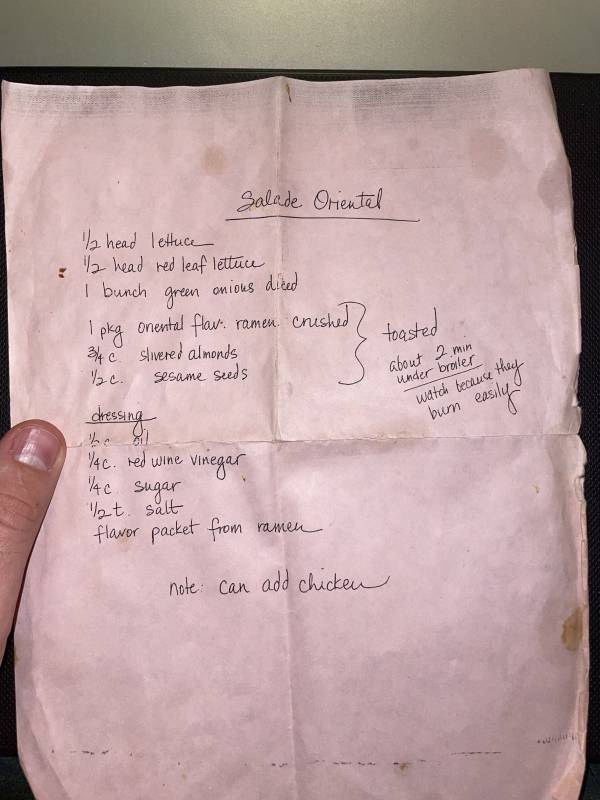 Salade Oriental
1/2 head lettuce
1/2 head red leaf lettuce
1 bunch green onions diced
1 pkg oriental flav. ramen crushed
3/4 c. slivered almonds
1/2 c. sesame seeds
toasted
about 2 min
under broiler
watch because they
burn easily
dressing
1/2 c oil
1/4 c. red wine vinegar
1/4 c sugar
1/2 t. salt
flavor packet from ramen
note: can add chicken